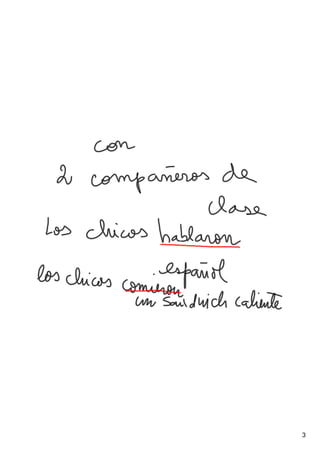 con
2 compañeros de
clase
Los chicos hablaron
.español
los chicos comieron
un sandwich caliente
3